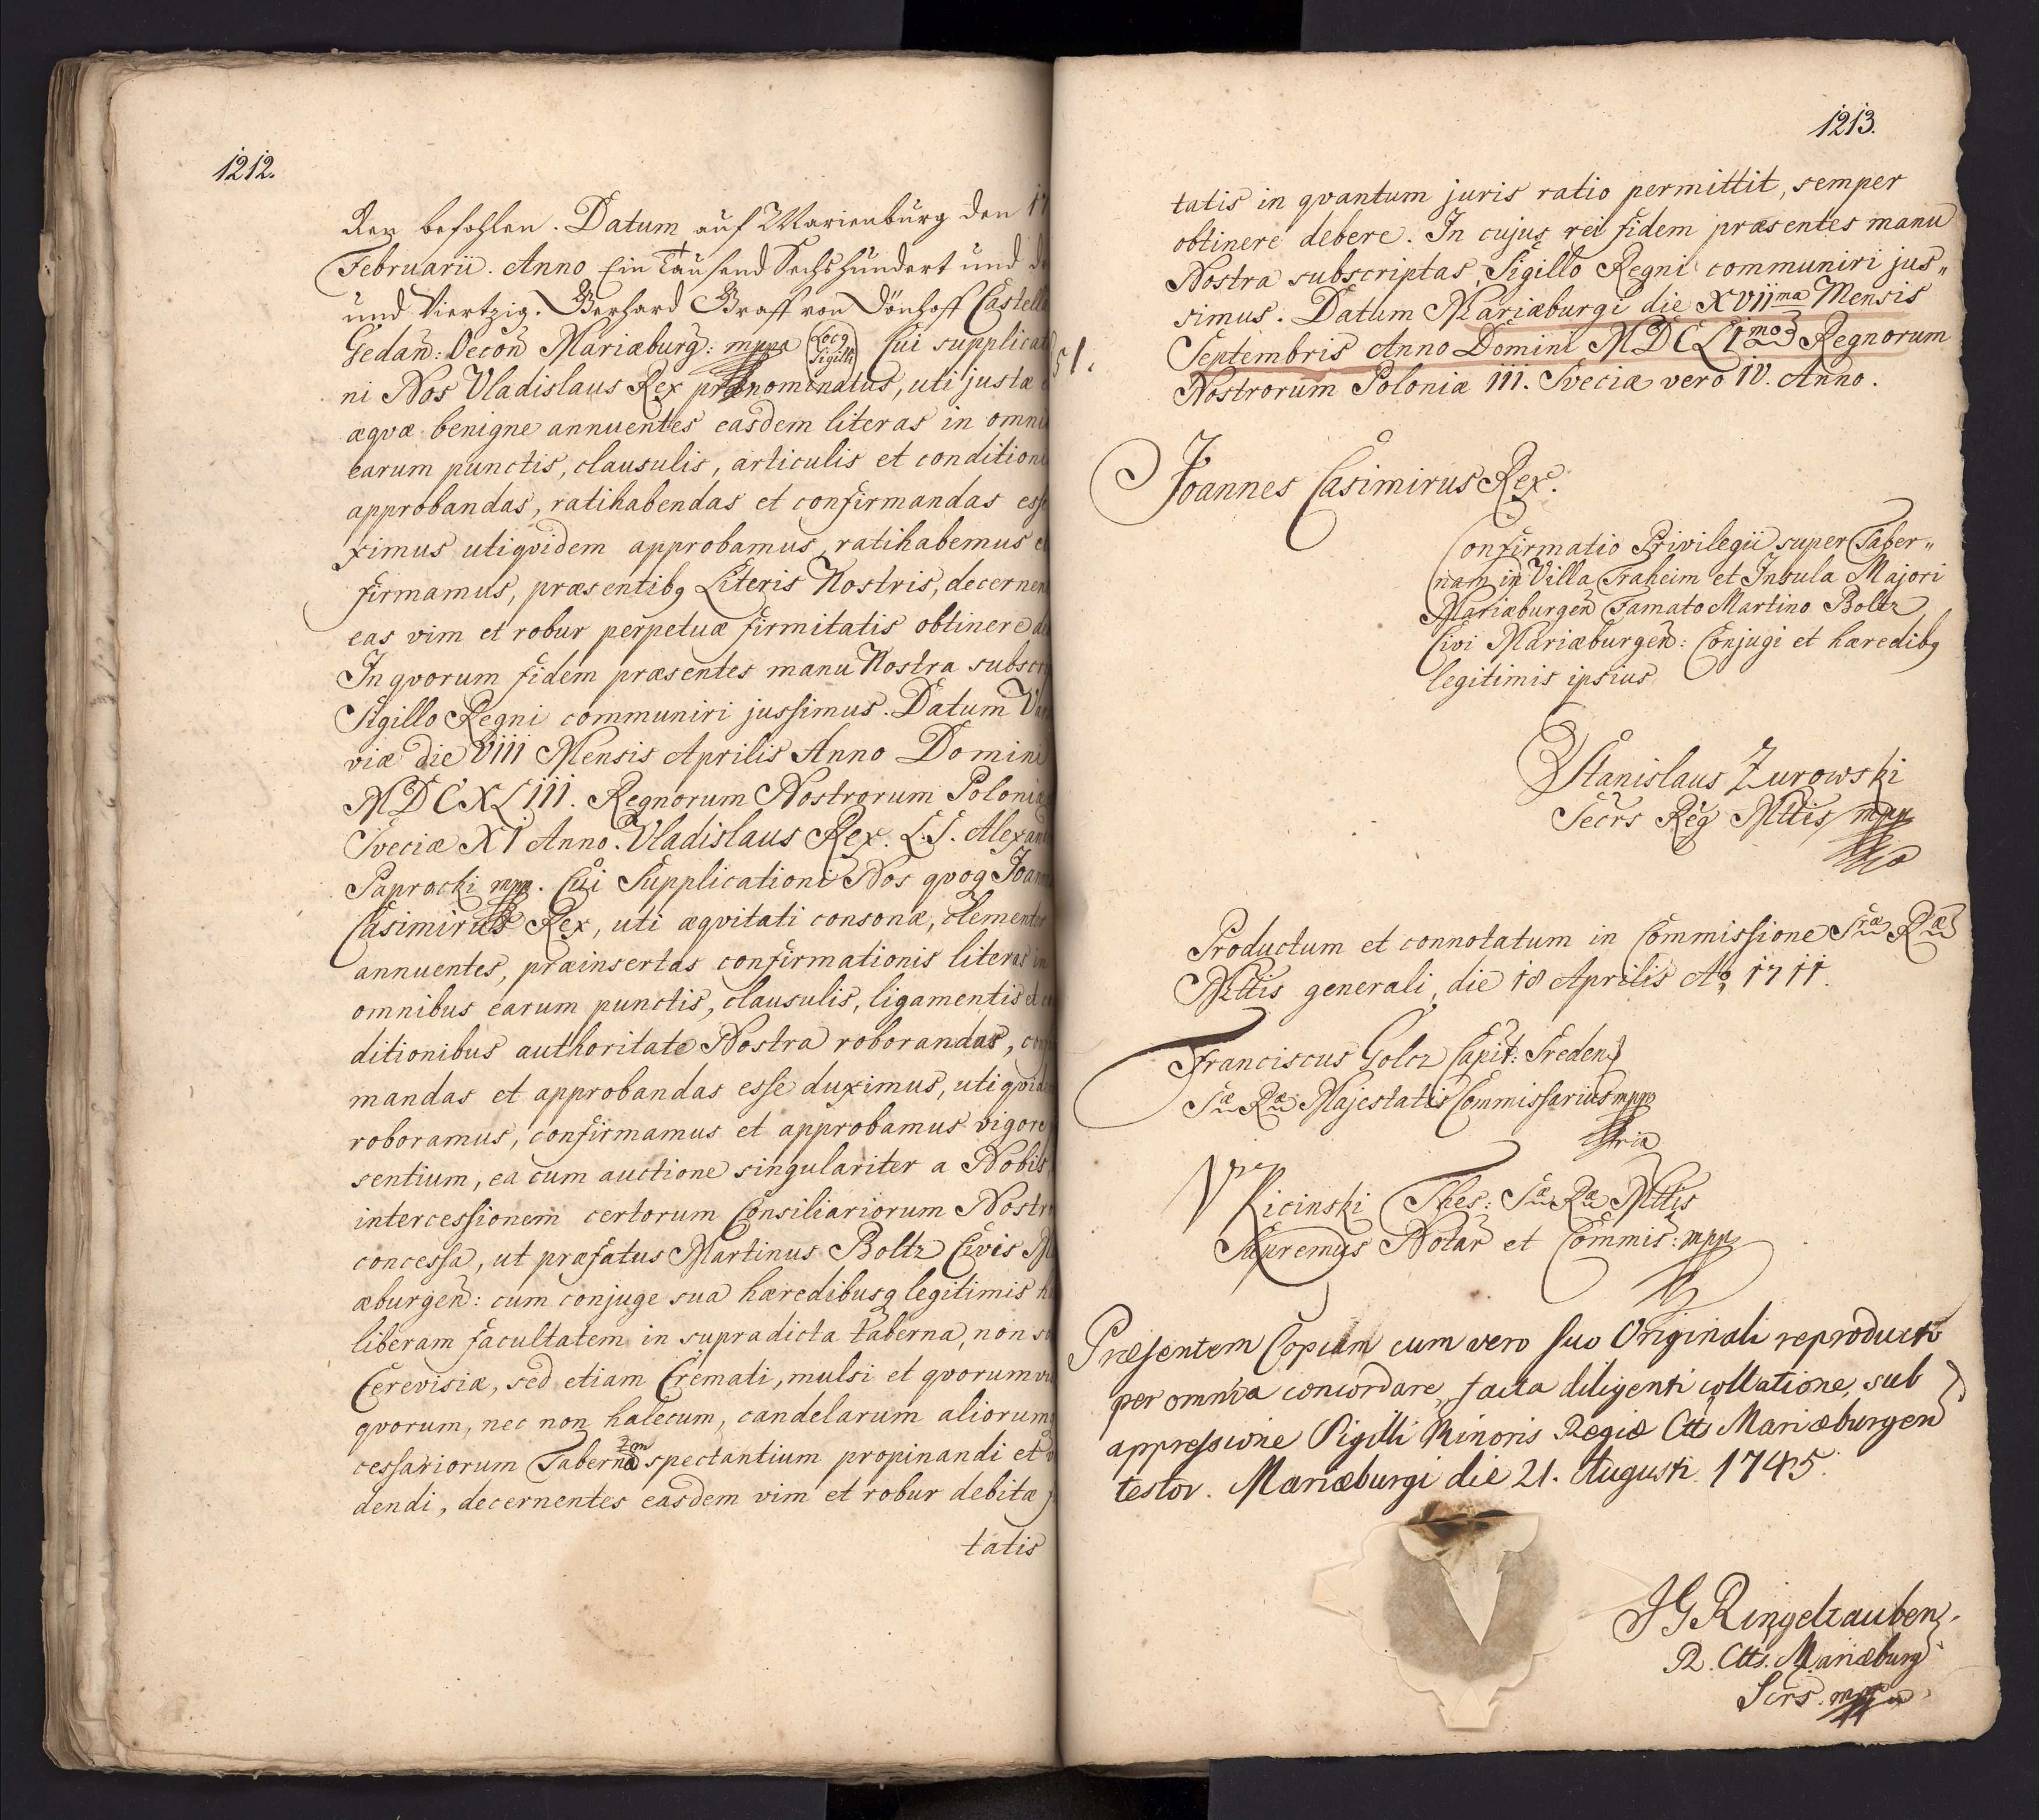 1212.
den befohlen. Datum auf Marienburg den 17
Februarii. Anno Ein Tausend Sechshundert und
und Viertzig. Gerhard Graff von Dönhoff Castell
Gedan: Oecon Mariæburg: mppa Locq Sigilli Cui supplicat
ni Nos Vladislaus Rex prænominatus, uti justæ
æqvæ benigne annuentes easdem literas in omni
earum punctis, clausulis, articulis et condition
approbandas, ratihabendas et confirmandas esse
ximus utiqvidem approbamus, ratihabemus et
firmamus, præsentibq Literis Nostris, decernen
eas vim et robur perpetuæ firmitatis obtinere de
In qvorum fidem præsentes manu Nostra subscri
Sigillo Regni communiri jussimus. Datum Var
viæ die VIII Mensis Aprilis Anno Domini
MDCXLIII. Regnorum Nostrorum Poloniæ
Sveciæ XI Anno. Vladislaus Rex. L.S. Alexan
Paprocki mpp. Cui Supplicationi Nos qvoq Joann
Casimirus Rex, uti æqvitati consonæ, clementer
annuentes, præinsertas confirmationis literas in
omnibus earum punctis, clausulis, ligamentis et
ditionibus authoritate Nostra roborandas, con
mandas et approbandas esse duximus, uti qvid
roboramus, confirmamus et approbamus vigore
sentium, ea cum auctione singulariter a Nobis
intercessionem certorum Consiliariorum Nostr
concessa, ut præfatus Martinus Boltz Civis M
æburgen: cum conjuge sua hæredibusq legitimis h
liberam facultatem in supradicta taberna, non so
Cerevisiæ, sed etiam Cremati, mulsi et qvorumvi
qvorum, nec non halecum, candelarum aliorumq
cessariorum Taberna spectantium propinandi et
dendi, decernentes easdem vim et robur debitæ
tatis
1213.
tatis in qvantum juris ratio permittit, semper
obtinere debere. In cujus rei fidem præsentes manu
Nostra subscriptas, Sigillo Regni communiri jus„
simus. Datum Mariæburgi die XVIIma Mensis
51. Septembris Anno Domini MDCLImo Regnorum
Nostrorum Poloniæ III. Sveciæ vero IV. Anno.
Joannes Casimirus Rex.
Confirmatio Privilegii super Taber„
nam in Villa Traheim et Insula Majori
Mariæburgen Famato Martino Boltz
Civi Mariæburgen: Conjugi et hæredibq
legitimis ipsius
Stanislaus Zurowski
Secrs Reg Mttis mpp
Productum et connotatum in Commissione Sæ Ræ
Mttis generali, die 18 Aprilis Ao 1711.
Franciscus Golcz Capit: Sreden
Sæ Ræ Majestatis Commissarius mpp
ria
Kicinski Thes: Sæ Ræ Mttis
Supremus Notar et Commis: mpp
Præsentem Copiam cum vero suo Originali reproducto
per omnia concordare, facta diligenti collatione, sub
appressione Sigilli Minoris Regiæ Ctts Mariæburgen
testor. Mariæburgi die 21. Augusti 1745.
JG Ringeltauben
R. Ctts. Mariæburg
Scrs. mpp